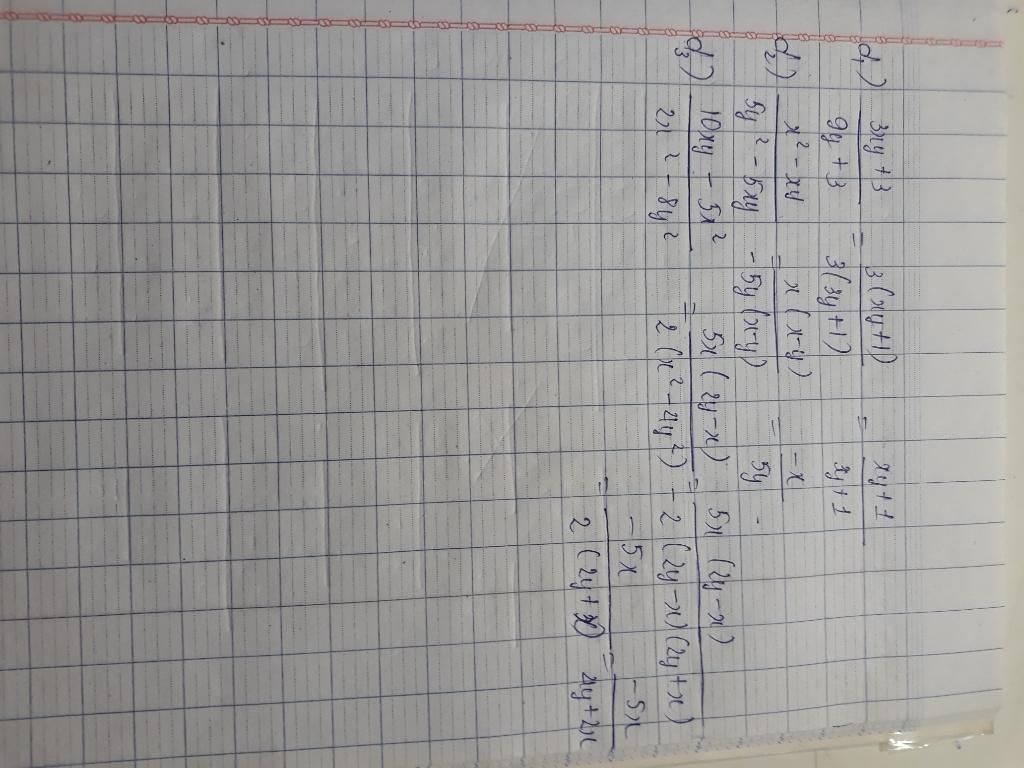 d₁) (3xy + 3)/(9y + 3) = 3(xy+1)/3(3y+1) = (xy+1)/(3y+1)
d₂) (x² - xy)/(5y² - 5xy) = x(x-y)/-5y(x-y) = -x/5y .
d₃) (10xy - 5x²)/(2x² - 8y²) = 5x(2y-x)/2(x²-4y²) = 5x(2y-x)/-2(2y-x)(2y+x)
= -5x/2(2y+x) = -5x/4y+2x